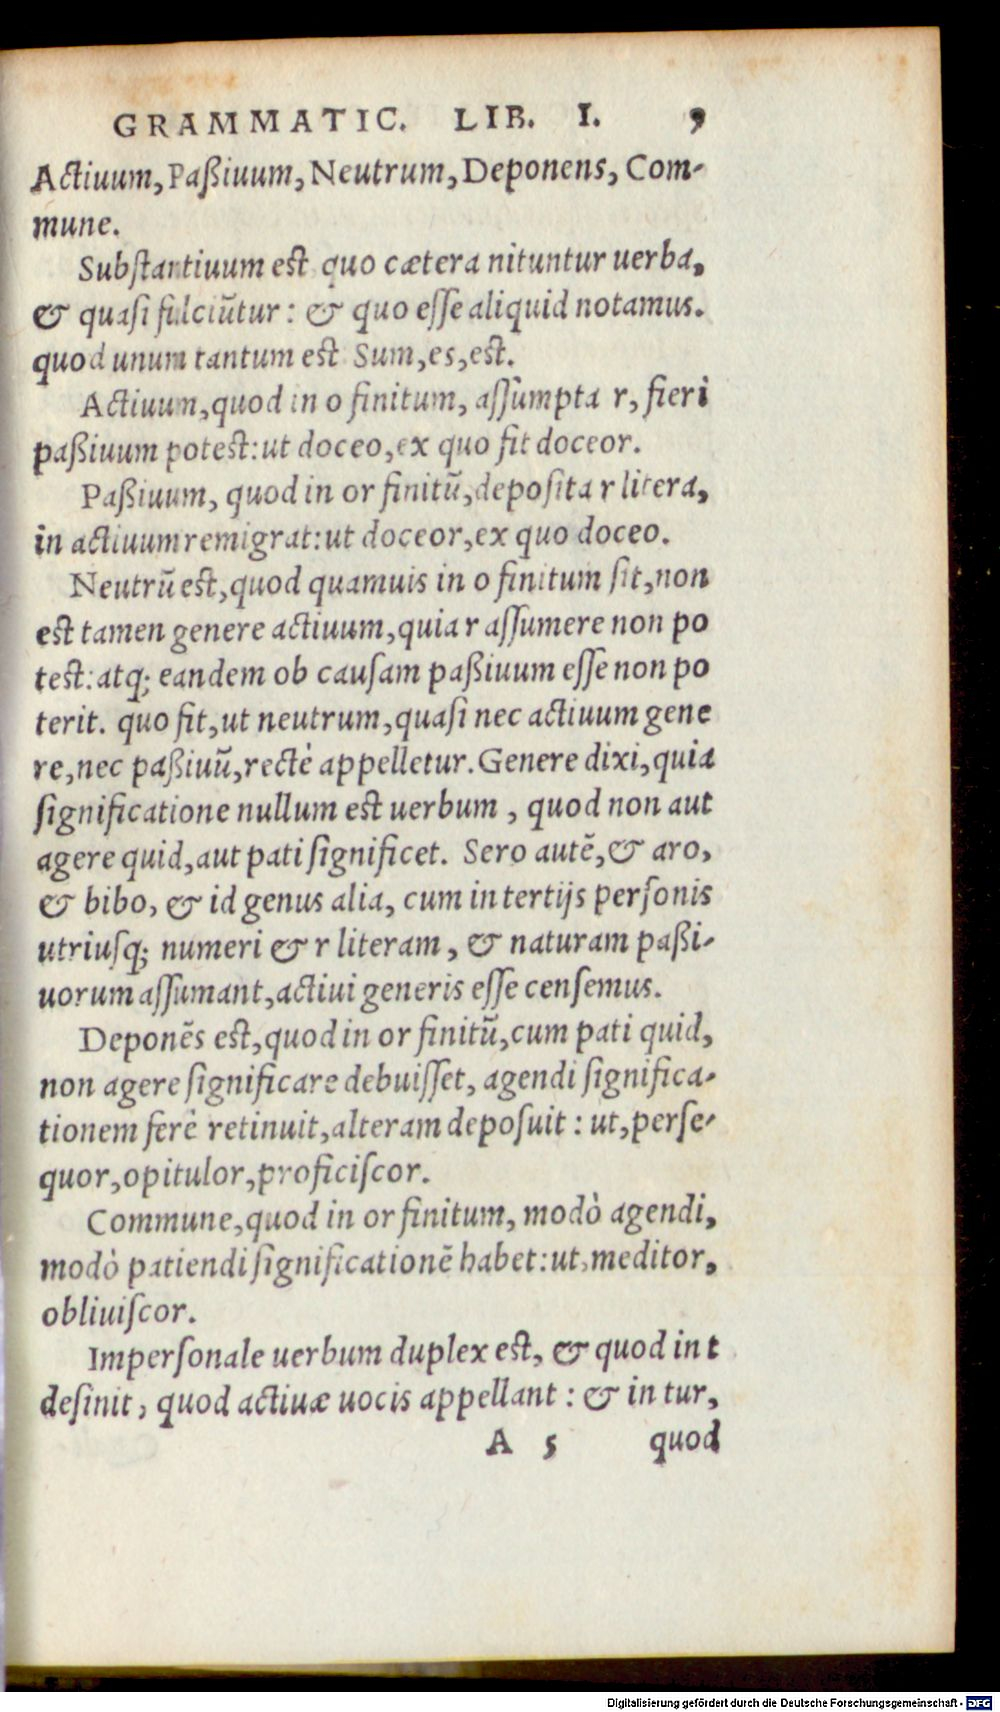 GRAMMATIC. LIB. I. 9
Actiuum, Paßiuum, Neutrum, Deponens, Com-
mune.
Subſtantiuum est quo cætera nituntur uerba,
& quasi fulciūtur: & quo eſſe aliquid notamus.
quod unum tantum est Sum, es, est.
Actiuum, quod in o finitum, aſſumpta r, fieri
paßiuum potest: ut doceo, ex quo fit doceor.
Paßiuum, quod in or finitū, deposita r litera,
in actiuum remigrat: ut doceor, ex quo doceo.
Neutrū est, quod quamuis in o finitum ſit, non
est tamen genere actiuum, quia r aſſumere non po
test: atq; eandem ob cauſam paßiuum eſſe non po
terit. quo fit, ut neutrum, quaſi nec actiuum gene
re, nec paßiuū, rectè appelletur. Genere dixi, quia
ſignificatione nullum est uerbum, quod non aut
agere quid, aut pati ſignificet. Sero autē, & aro,
& bibo, & id genus alia, cum in tertijs perſonis
utriuſq; numeri & r literam, & naturam paßi-
uorum aſſumant, actiui generis eſſe censemus.
Deponēs est, quod in or finitū, cum pati quid,
non agere ſignificare debuiſſet, agendi ſignifica-
tionem ferè retinuit, alteram depoſuit: ut, perſe-
quor, opitulor, proficiſcor.
Commune, quod in or finitum, modò agendi,
modò patiendi ſignificationē habet: ut, meditor,
obliuiſcor.
Imperſonale uerbum duplex est, & quod in t
deſinit, quod actiuæ uocis appellant: & in tur,
A 5 quod
Digitalisierung gefördert durch die Deutsche Forschungsgemeinschaft - DFG